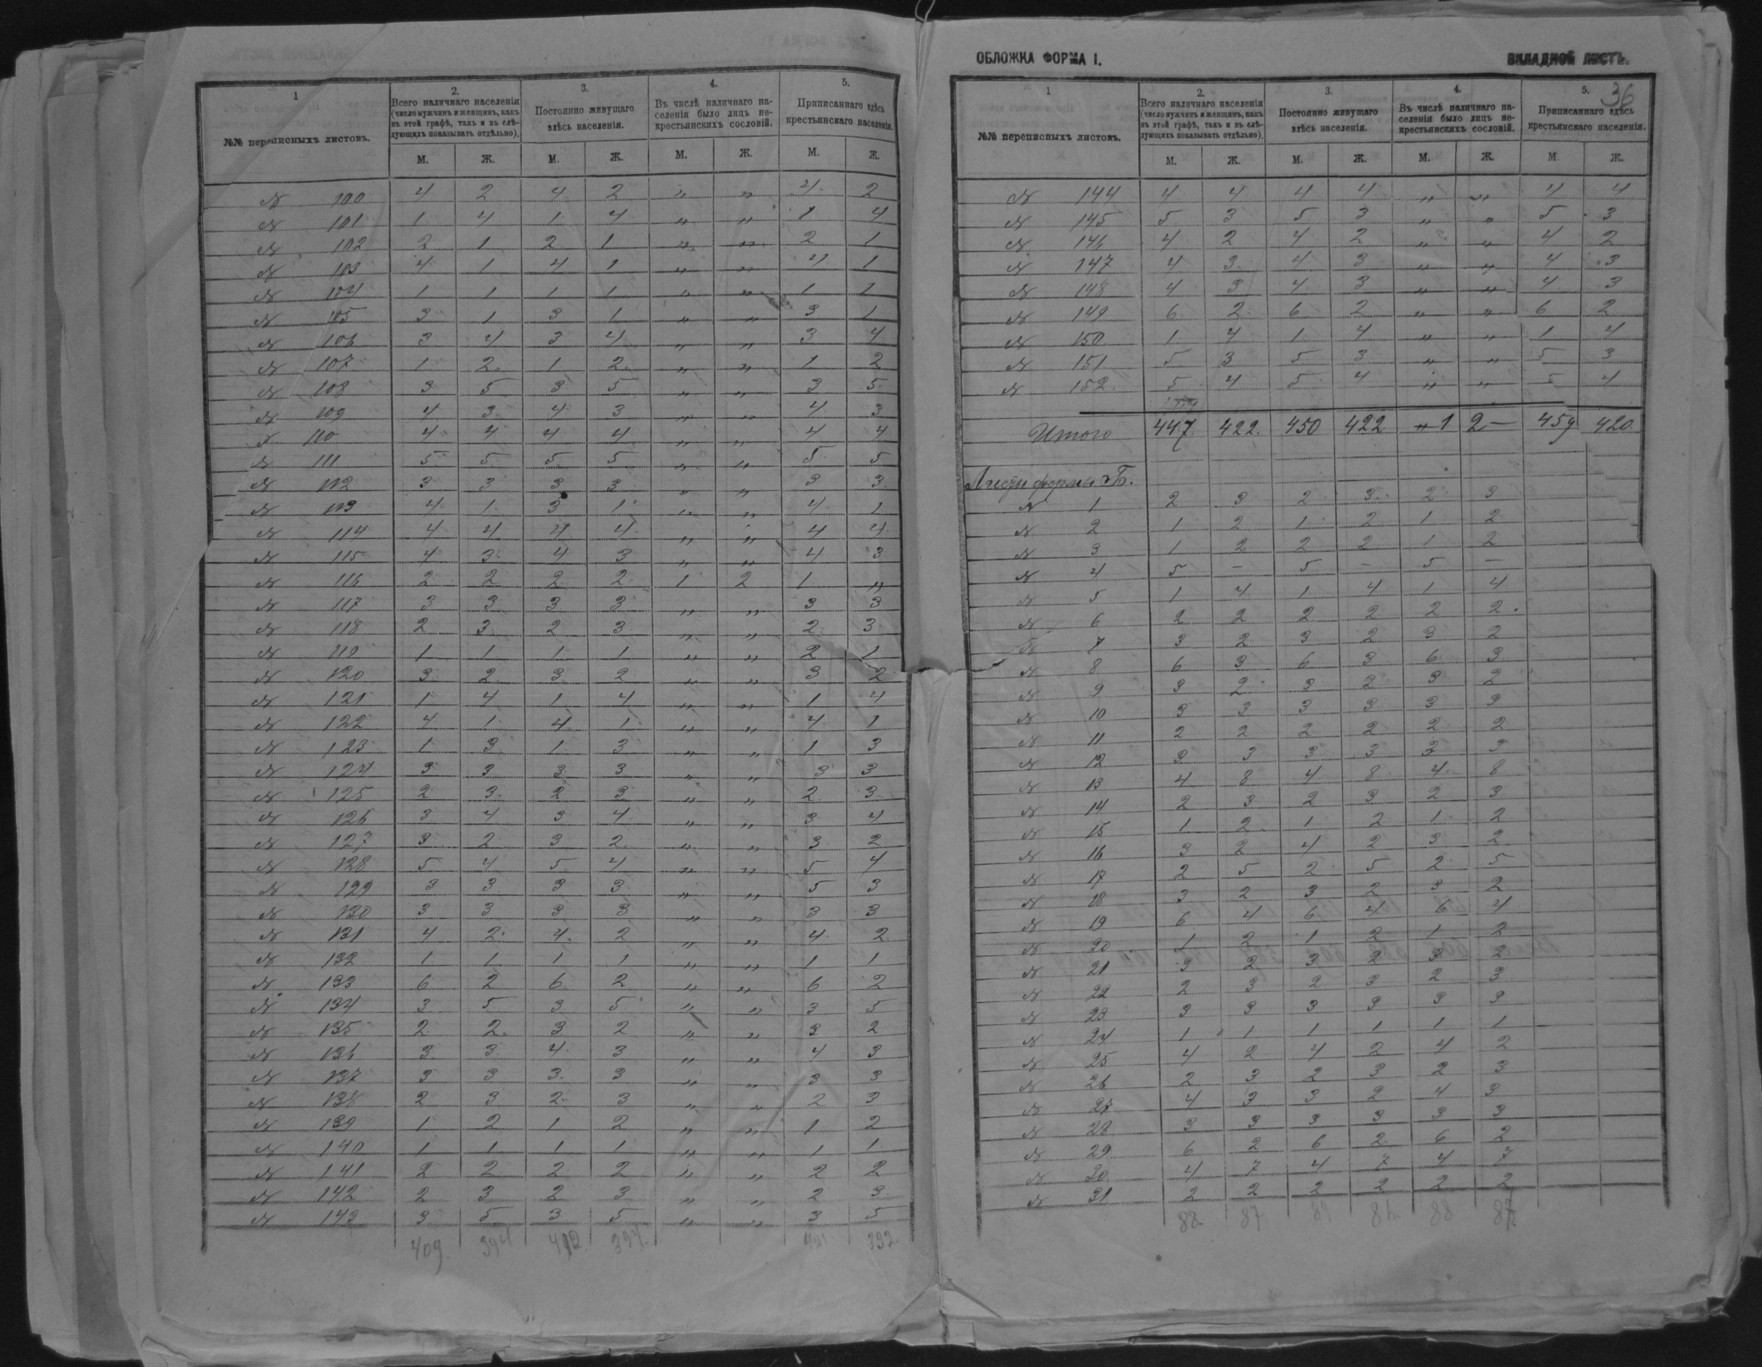 1
2.
3.
4.
5.
№№ переписныхъ листовъ.
Всего наличнаго населенія (число мужчинъ и женщинъ, какъ въ этой графѣ, такъ и въ слѣдующихъ показывать отдѣльно).
Постоянно живущаго здѣсь населенія.
Въ числѣ наличнаго населенія было лицъ некрестьянскихъ сословій.
Приписаннаго здѣсь крестьянскаго населенія.
М. Ж. М. Ж. М. Ж. М. Ж.
№ 100 4 2 4 2 „ „ 4 2
№ 101 1 4 1 4 „ „ 1 4
№ 102 2 1 2 1 „ „ 2 1
№ 103 4 1 4 1 „ „ 4 1
№ 104 1 1 1 1 „ „ 1 1
№ 105 3 1 3 1 „ „ 3 1
№ 106 3 4 3 4 „ „ 3 4
№ 107 1 2 1 2 „ „ 1 2
№ 108 3 5 3 5 „ „ 3 5
№ 109 4 3 4 3 „ „ 4 3
№ 110 4 4 4 4 „ „ 4 4
№ 111 5 5 5 5 „ „ 5 5
№ 112 3 3 3 3 „ „ 3 3
№ 113 4 1 3 1 „ „ 4 1
№ 114 4 4 4 4 „ „ 4 4
№ 115 4 3 4 3 „ „ 4 3
№ 116 2 2 2 2 1 2 1 „
№ 117 3 3 3 3 „ „ 3 3
№ 118 2 3 2 3 „ „ 2 3
№ 119 1 1 1 1 „ „ 2 1
№ 120 3 2 3 2 „ „ 3 2
№ 121 1 4 1 4 „ „ 1 4
№ 122 4 1 4 1 „ „ 4 1
№ 123 1 3 1 3 „ „ 1 3
№ 124 3 3 3 3 „ „ 3 3
№ 125 2 3 2 3 „ „ 2 3
№ 126 3 4 3 4 „ „ 3 4
№ 127 3 2 3 2 „ „ 3 2
№ 128 5 4 5 4 „ „ 5 4
№ 129 3 3 3 3 „ „ 5 3
№ 130 3 3 3 3 „ „ 3 3
№ 131 4 2 4 2 „ „ 4 2
№ 132 1 1 1 1 „ „ 1 1
№ 133 6 2 6 2 „ „ 6 2
№ 134 3 5 3 5 „ „ 3 5
№ 135 2 2 3 2 „ „ 3 2
№ 136 3 3 4 3 „ „ 4 3
№ 137 3 3 3 3 „ „ 3 3
№ 138 2 3 2 3 „ „ 2 3
№ 139 1 2 1 2 „ „ 1 2
№ 140 1 1 1 1 „ „ 1 1
№ 141 2 2 2 2 „ „ 2 2
№ 142 2 3 2 3 „ „ 2 3
№ 143 3 5 3 5 „ „ 3 5
409 394 412 394 392
ОБЛОЖКА ФОРМА I.
ВКЛАДНОЙ ЛИСТЪ.
36
1
2.
3.
4.
5.
№№ переписныхъ листовъ.
Всего наличнаго населенія (число мужчинъ и женщинъ, какъ въ этой графѣ, такъ и въ слѣдующихъ показывать отдѣльно).
Постоянно живущаго здѣсь населенія.
Въ числѣ наличнаго населенія было лицъ некрестьянскихъ сословій.
Приписаннаго здѣсь крестьянскаго населенія.
М. Ж. М. Ж. М. Ж. М. Ж.
№ 144 4 4 4 4 „ „ 4 4
№ 145 5 3 5 3 „ „ 5 3
№ 146 4 2 4 2 „ „ 4 2
№ 147 4 3 4 3 „ „ 4 3
№ 148 4 3 4 3 „ „ 4 3
№ 149 6 2 6 2 „ „ 6 2
№ 150 1 4 1 4 „ „ 1 4
№ 151 5 3 5 3 „ „ 5 3
№ 152 5 4 5 4 „ „ 5 4
Итого 447 422 450 422 „1 2— 459 420
Листы форма Б.
№ 1 2 3 2 3 2 3
№ 2 1 2 1 2 1 2
№ 3 1 2 2 2 1 2
№ 4 5 — 5 — 5 —
№ 5 1 4 1 4 1 4
№ 6 2 2 2 2 2 2
№ 7 3 2 3 2 3 2
№ 8 6 3 6 3 6 3
№ 9 3 2 3 2 3 2
№ 10 3 3 3 3 3 3
№ 11 2 2 2 2 2 2
№ 12 3 3 3 3 2 3
№ 13 4 8 4 8 4 8
№ 14 2 3 2 3 2 3
№ 15 1 2 1 2 1 2
№ 16 3 2 4 2 3 2
№ 17 2 5 2 5 2 5
№ 18 3 2 3 2 3 2
№ 19 6 4 6 4 6 4
№ 20 1 2 1 2 1 2
№ 21 3 2 3 2 3 2
№ 22 2 3 2 3 2 3
№ 23 3 3 3 3 3 3
№ 24 1 1 1 1 1 1
№ 25 4 2 4 2 4 2
№ 26 2 3 2 3 2 3
№ 27 4 3 3 2 4 3
№ 28 3 3 3 3 3 3
№ 29 6 2 6 2 6 2
№ 30 4 7 4 7 4 7
№ 31 2 2 2 2 2 2
88 87 88 87